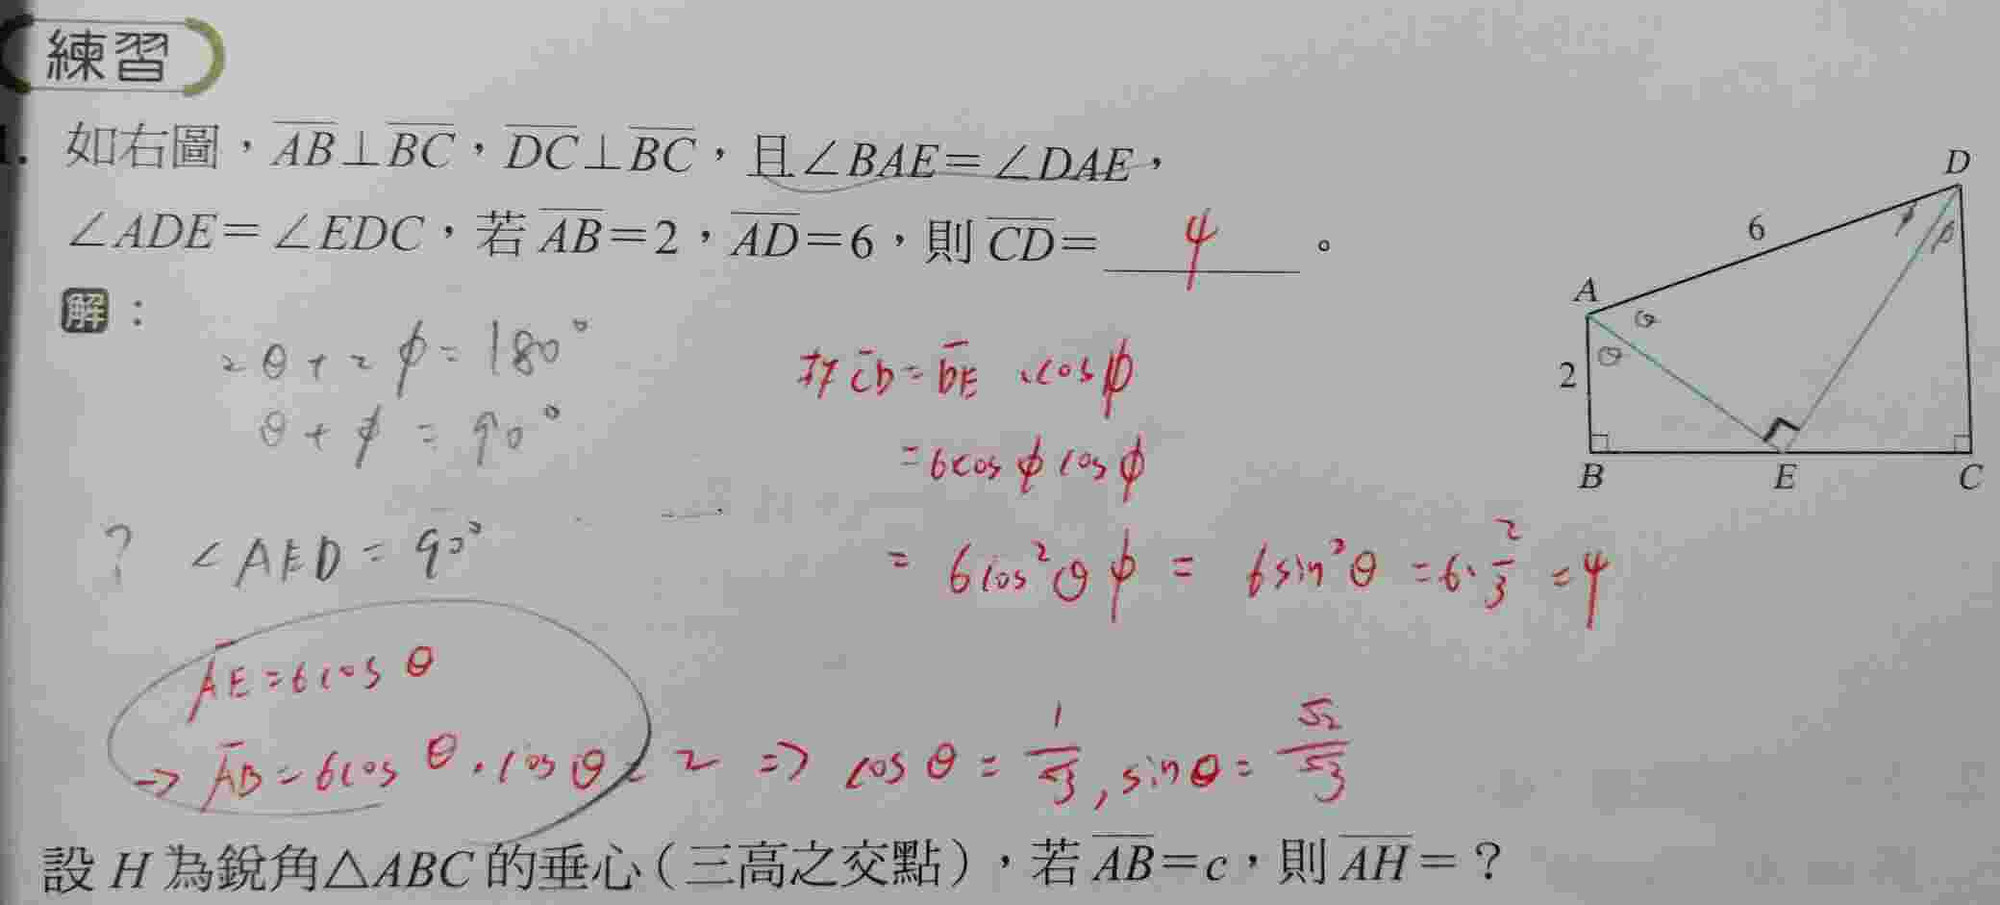 練習
1. 如右圖，AB⊥BC，DC⊥BC，且∠BAE=∠DAE，
∠ADE=∠EDC，若AB=2，AD=6，則CD= 4 。
解：
2θ+2ϕ=180°
θ+ϕ=90°
? ∠AED=90°
AE=6cosθ
→ AB=6cosθ·cosθ=2 ⇒ cosθ=1/√3, sinθ=√2/√3
CD=DE·cosϕ
=6cosϕcosϕ
=6cos²θϕ=6sin²θ=6·2/3=4
D
6
ϕ
A
θ
θ
2
B
E
C
設H為銳角△ABC的垂心(三高之交點)，若AB=c，則AH=？